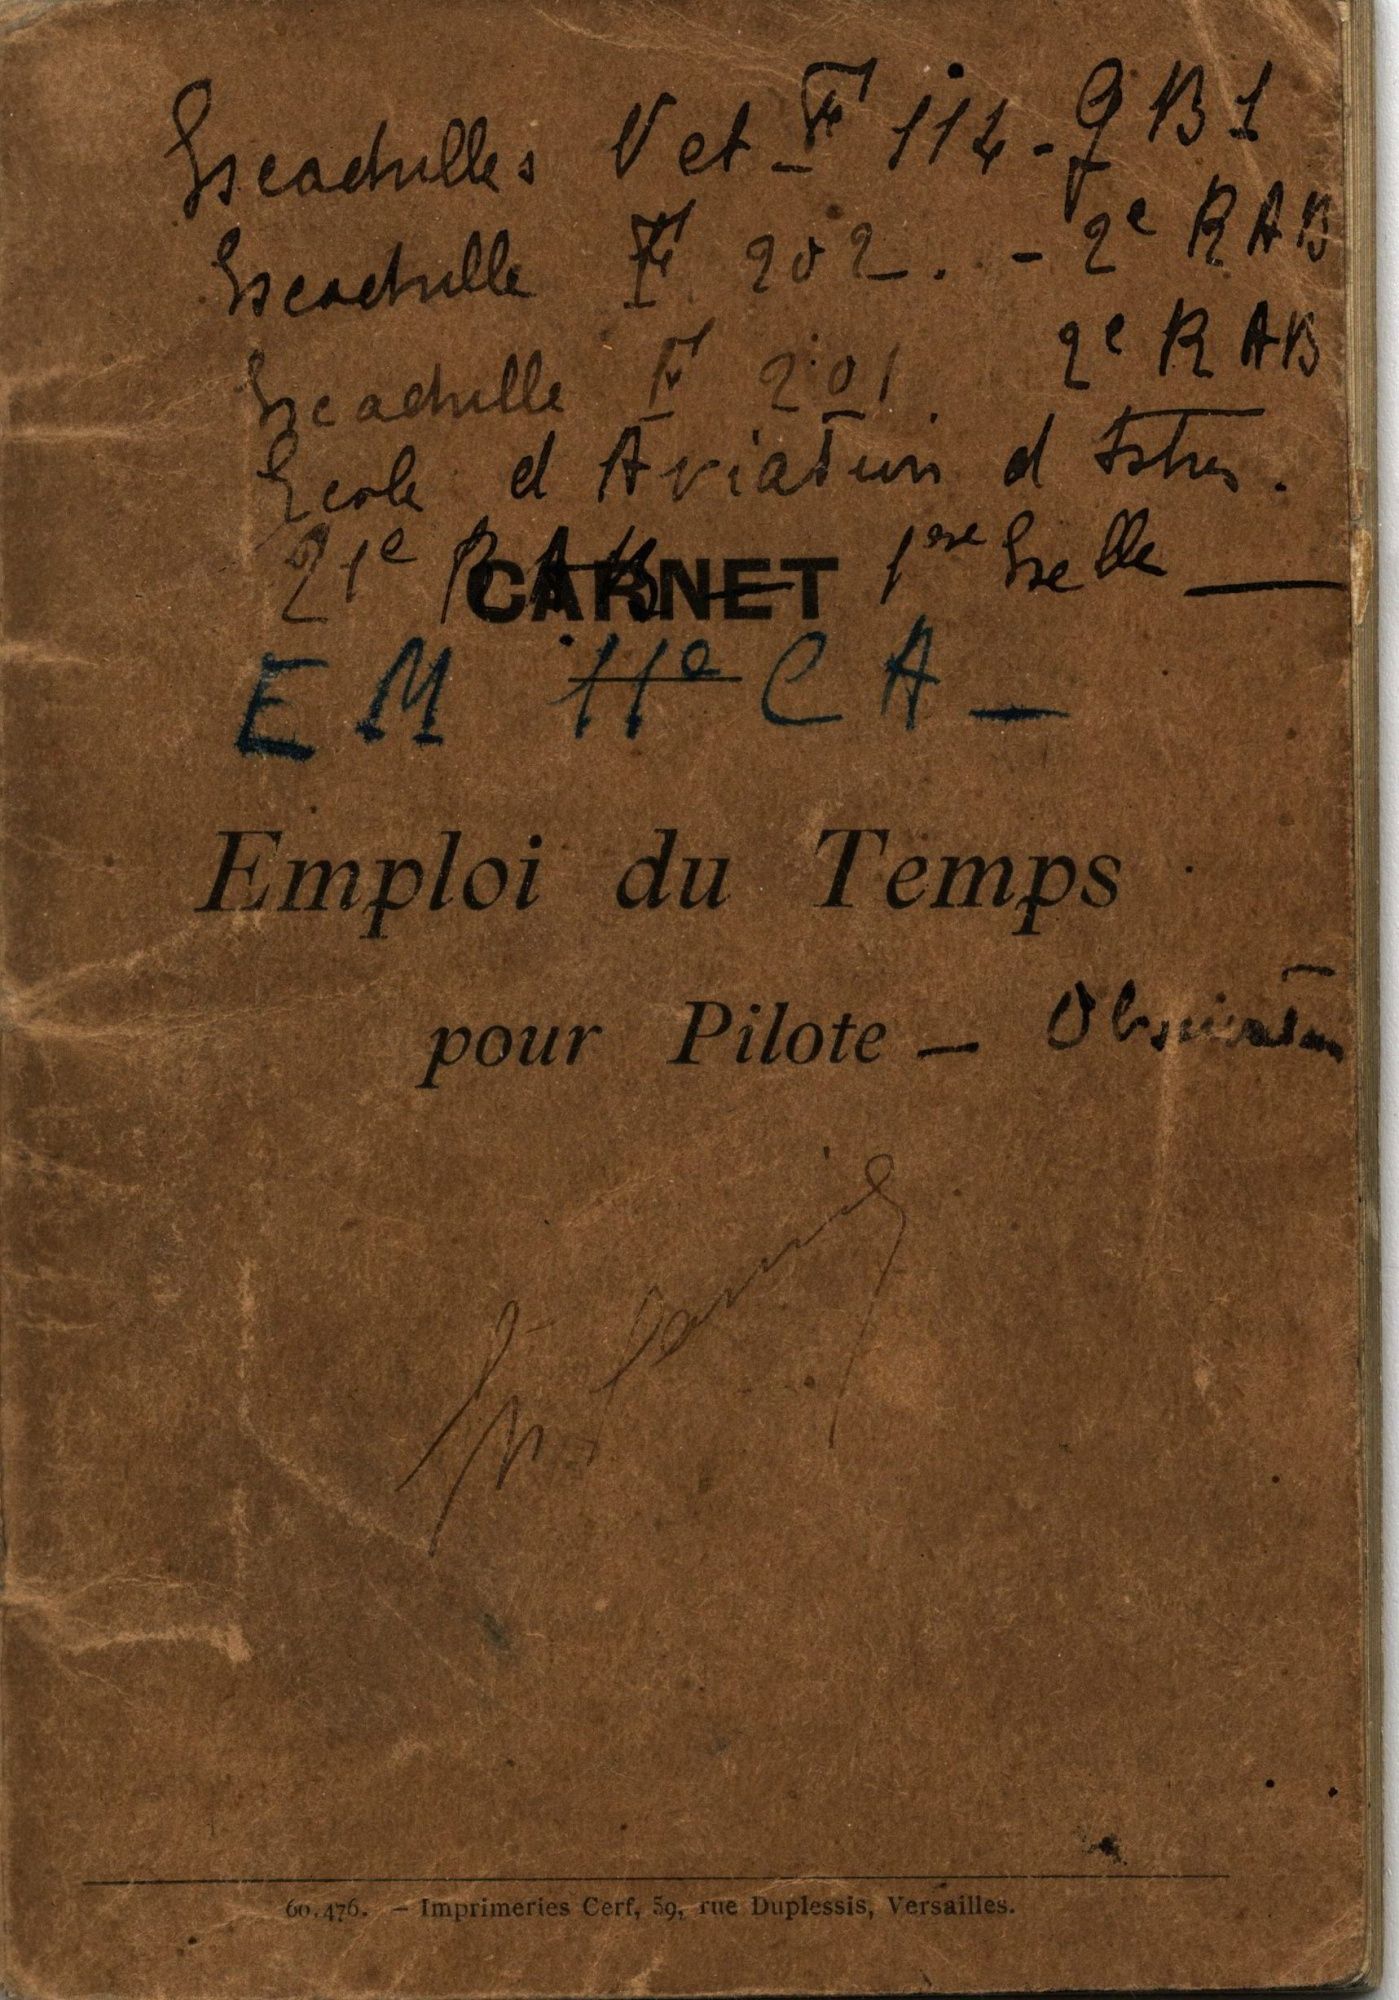 Escadrilles V et F 114 - G B 1
Escadrille F 202. - 2e R A B
Escadrille F 201. 2e R A B
Ecole d Aviation d Istres.
21e R A B - 1ere Esc elle
CARNET
E M 11e C A -
Emploi du Temps
pour Pilote - Observateur
60.476. - Imprimeries Cerf, 59, rue Duplessis, Versailles.